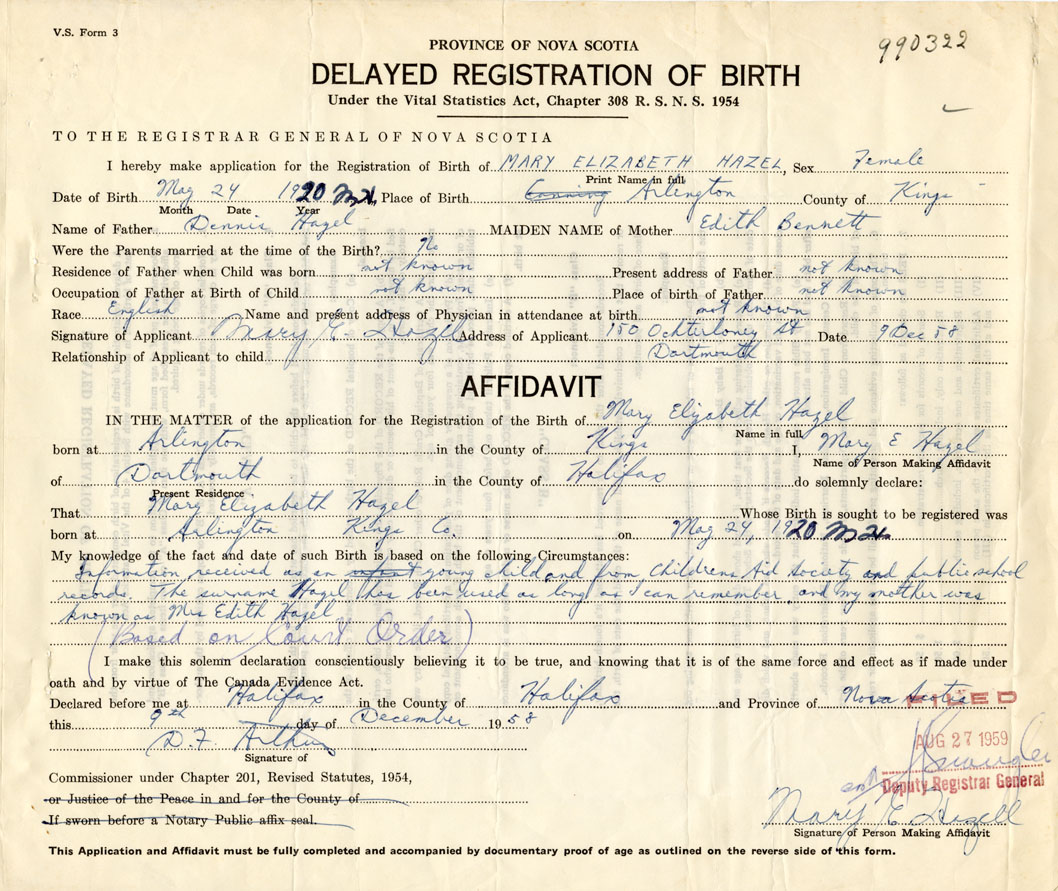 V.S. Form 3
990322
PROVINCE OF NOVA SCOTIA
DELAYED REGISTRATION OF BIRTH
Under the Vital Statistics Act, Chapter 308 R. S. N. S. 1954
TO THE REGISTRAR GENERAL OF NOVA SCOTIA
I hereby make application for the Registration of Birth of MARY ELIZABETH HAZEL, Sex Female
Print Name in full
Date of Birth May 24 1920, Place of Birth Canning Arlington County of Kings
Month Date Year
Name of Father Dennis Hazel MAIDEN NAME of Mother Edith Bennett
Were the Parents married at the time of the Birth? No
Residence of Father when Child was born not known Present address of Father not known
Occupation of Father at Birth of Child not known Place of birth of Father not known
Race English Name and present address of Physician in attendance at birth not known
Signature of Applicant Mary E. Hazel Address of Applicant 150 Ochterloney St Date 9 Dec 58
Dartmouth
Relationship of Applicant to child
AFFIDAVIT
IN THE MATTER of the application for the Registration of the Birth of Mary Elizabeth Hazel
Name in full
born at Arlington in the County of Kings I, Mary E Hazel
Name of Person Making Affidavit
of Dartmouth in the County of Halifax do solemnly declare:
Present Residence
That Mary Elizabeth Hazel Whose Birth is sought to be registered was
born at Arlington Kings Co. on May 24, 1920
My knowledge of the fact and date of such Birth is based on the following Circumstances:
Information received as an infant young child and from Childrens Aid Society and public school
records. The surname Hazel has been used as long as I can remember and my mother was
known as Mrs Edith Hazel
(Based on Court Order)
I make this solemn declaration conscientiously believing it to be true, and knowing that it is of the same force and effect as if made under
oath and by virtue of The Canada Evidence Act.
Declared before me at Halifax in the County of Halifax and Province of Nova Scotia
FILED
this 9th day of December 1958
AUG 27 1959
D.F. Arthur
Signature of
Deputy Registrar General
Commissioner under Chapter 201, Revised Statutes, 1954,
or Justice of the Peace in and for the County of
Mary E Hazell
If sworn before a Notary Public affix seal.
Signature of Person Making Affidavit
This Application and Affidavit must be fully completed and accompanied by documentary proof of age as outlined on the reverse side of this form.